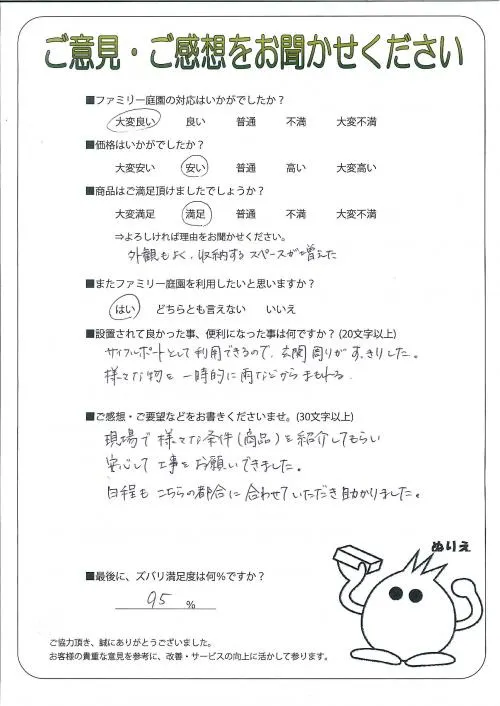 ご意見・ご感想をお聞かせください
■ファミリー庭園の対応はいかがでしたか？
大変良い 良い 普通 不満 大変不満
■価格はいかがでしたか？
大変安い 安い 普通 高い 大変高い
■商品はご満足頂けましたでしょうか？
大変満足 満足 普通 不満 大変不満
⇒よろしければ理由をお聞かせください。
外観もよく、収納するスペースが増えた
■またファミリー庭園を利用したいと思いますか？
はい どちらとも言えない いいえ
■設置されて良かった事、便利になった事は何ですか？(20文字以上)
サイクルポートとして利用できるので、玄関周りがすっきりした。
様々な物を一時的に雨などからまもれる。
■ご感想・ご要望などをお書きくださいませ。(30文字以上)
現場で様々な条件(商品)を紹介してもらい
安心して工事をお願いできました。
日程もこちらの都合に合わせていただき助かりました。
ぬりえ
■最後に、ズバリ満足度は何％ですか？
95 ％
ご協力頂き、誠にありがとうございました。
お客様の貴重な意見を参考に、改善・サービスの向上に活かして参ります。